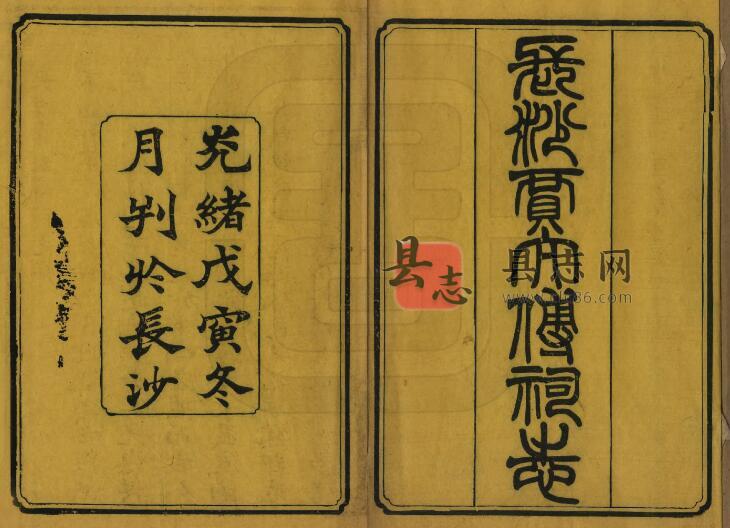 長沙賈太傅祠志
县志
县志网
光緒戊寅冬
月刋於長沙